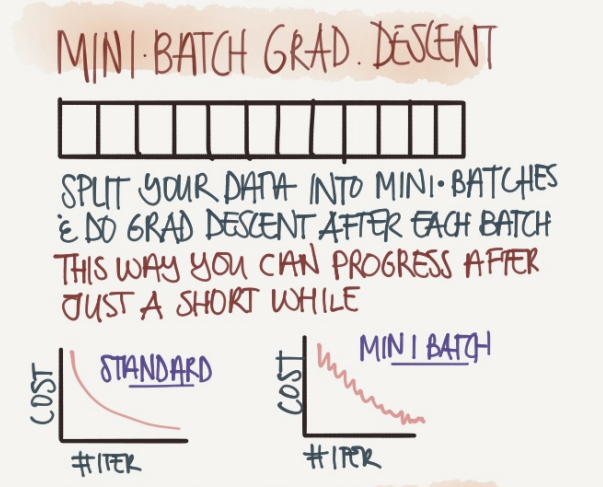 MINI·BATCH GRAD. DESCENT
SPLIT YOUR DATA INTO MINI·BATCHES
& DO GRAD DESCENT AFTER EACH BATCH
THIS WAY YOU CAN PROGRESS AFTER
JUST A SHORT WHILE
STANDARD
COST
#ITER
MINI BATCH
COST
#ITER